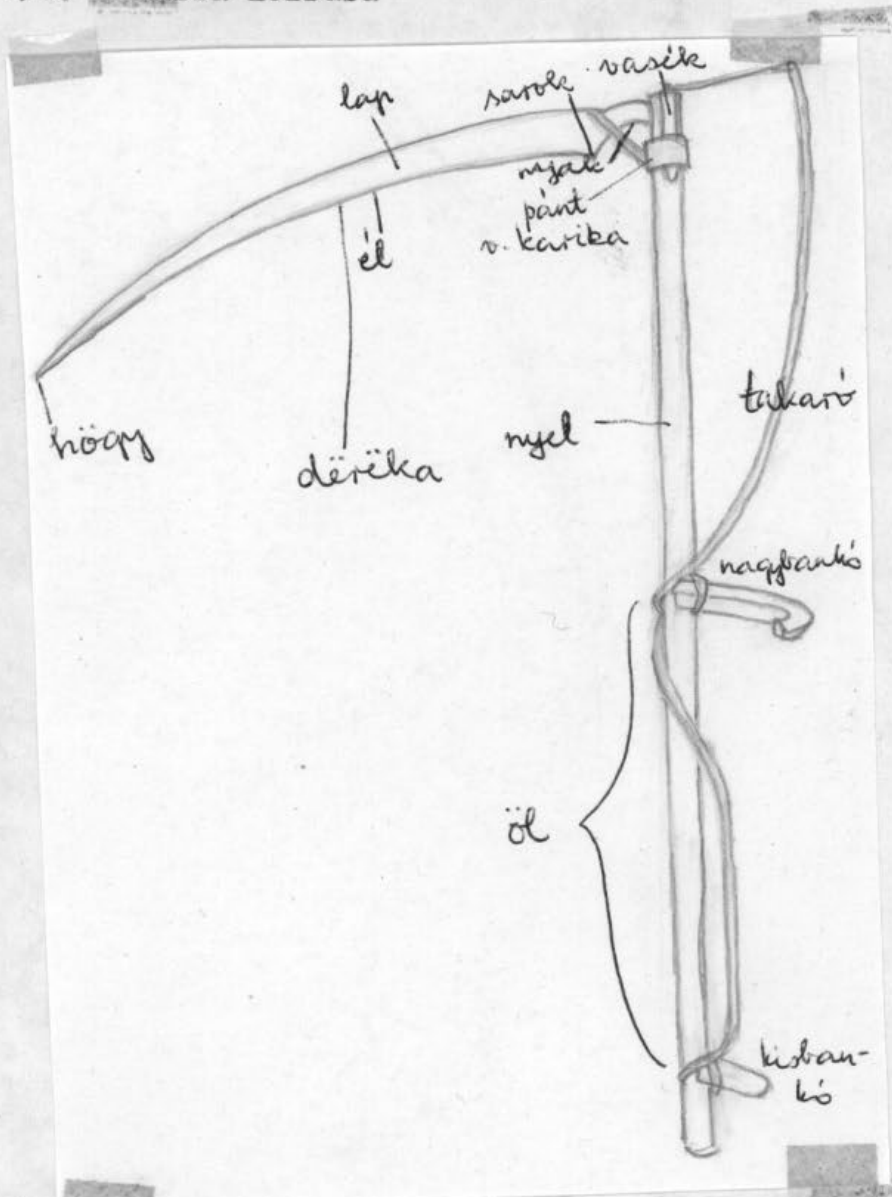 lap
sarok
vasék
nyak
pánt
v. karika
él
högy
dërëka
nyel
takaró
nagybankó
öl
kisban-
kó